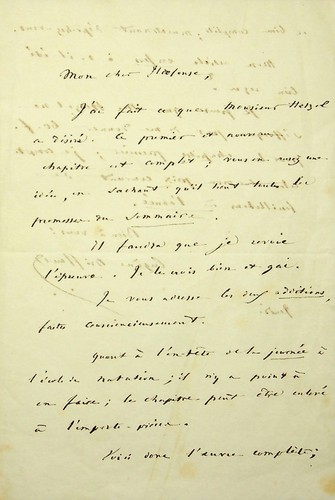 Mon cher Ildefonse,
J'ai fait ce que Monsieur Hetzel
a désiré. Ce premier et nouveau
chapitre est complet; vous en aurez une
idée, en sachant qu'il tient toutes les
promesses du Sommaire.
Il faudra que je revoie
l'épreuve. Je le crois bien et gai.
Je vous adresse les deux additions,
faites consciencieusement.
Quant à l'entête de la journée à
l'école de natation, il n'y a point à
en faire; le chapitre peut être enlevé
à l'emporte-pièce.
Voici donc l'œuvre complète;